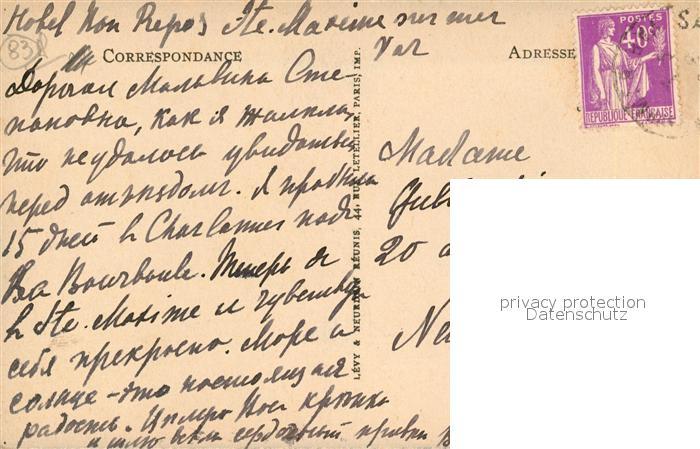 Hotel Mon Repos Ste. Maxime sur mer
Var
83
CORRESPONDANCE
ADRESSE
POSTES
40c
REPUBLIQUE FRANÇAISE
Дорогая Мальвина Сте-
пановна, как я жалела,
что не удалось увидаться
перед отъездом. Я провела
15 дней в Charlannes над
La Bourboule. Теперь я
в Ste. Maxime и чувствую
себя прекрасно. Море и
солнце - это настоящая
радость. Вас крепко
и шлю всем сердечный привет
LÉVY & NEURDEIN RÉUNIS, 44, RUE LETELLIER, PARIS, IMP.
Madame
20
privacy protection
Datenschutz